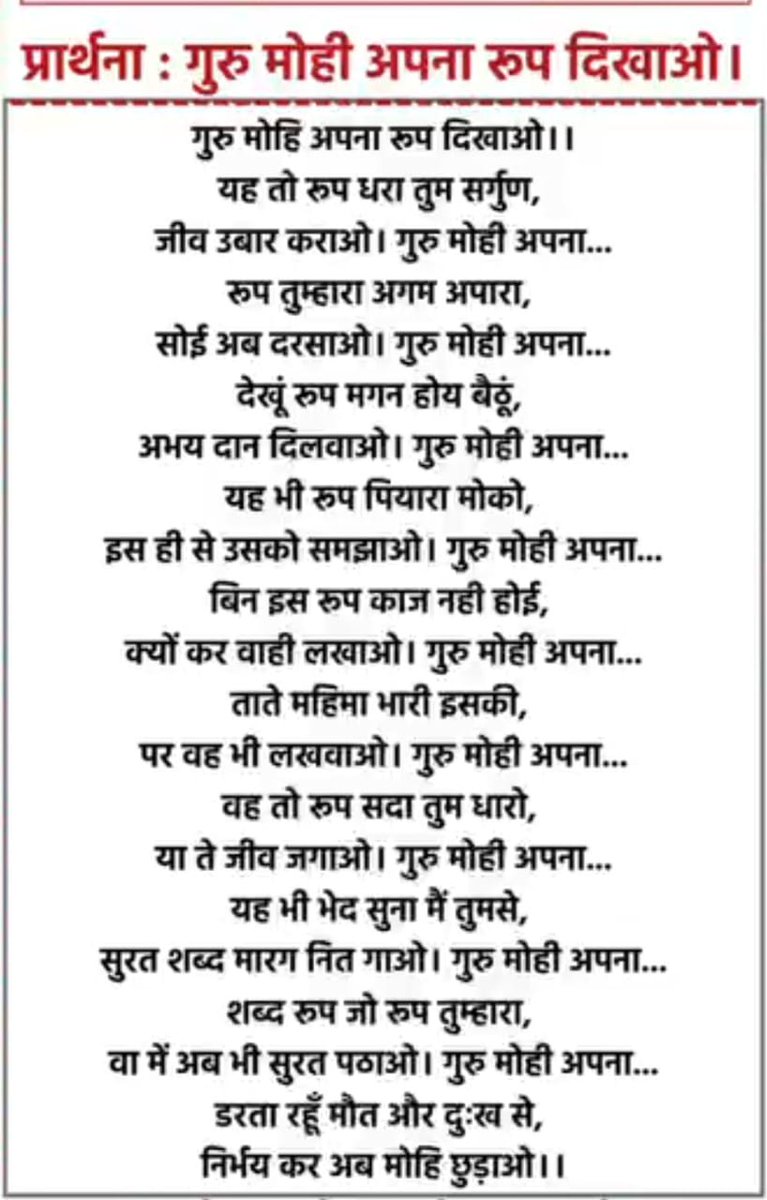 प्रार्थना : गुरु मोही अपना रूप दिखाओ।
गुरु मोहि अपना रूप दिखाओ।।
यह तो रूप धरा तुम सर्गुण,
जीव उबार कराओ। गुरु मोही अपना...
रूप तुम्हारा अगम अपारा,
सोई अब दरसाओ। गुरु मोही अपना...
देखूं रूप मगन होय बैठूं,
अभय दान दिलवाओ। गुरु मोही अपना...
यह भी रूप पियारा मोको,
इस ही से उसको समझाओ। गुरु मोही अपना...
बिन इस रूप काज नही होई,
क्यों कर वाही लखाओ। गुरु मोही अपना...
ताते महिमा भारी इसकी,
पर वह भी लखवाओ। गुरु मोही अपना...
वह तो रूप सदा तुम धारो,
या ते जीव जगाओ। गुरु मोही अपना...
यह भी भेद सुना मैं तुमसे,
सुरत शब्द मारग नित गाओ। गुरु मोही अपना...
शब्द रूप जो रूप तुम्हारा,
वा में अब भी सुरत पठाओ। गुरु मोही अपना...
डरता रहूँ मौत और दुःख से,
निर्भय कर अब मोहि छुड़ाओ।।